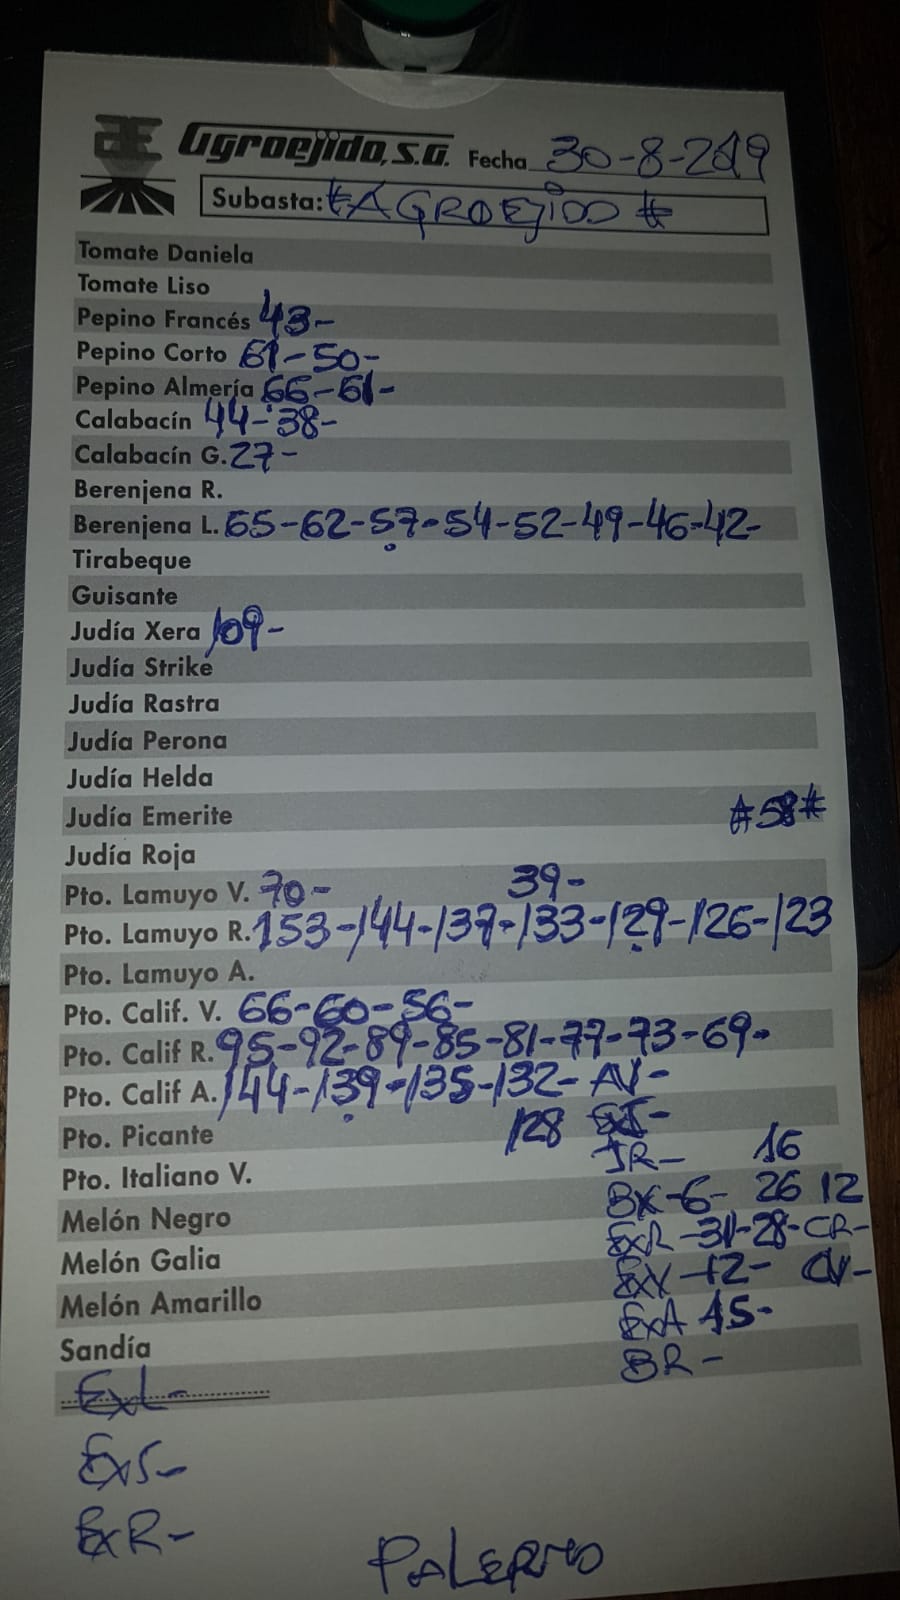 Agroejido, S.A. Fecha 30-8-2019
Subasta: #AGROEJIDO#
Tomate Daniela
Tomate Liso
Pepino Francés 43-
Pepino Corto 61-50-
Pepino Almería 66-61-
Calabacín 44-38-
Calabacín G. 27-
Berenjena R.
Berenjena L. 65-62-57-54-52-49-46-42-
Tirabeque
Guisante
Judía Xera 109-
Judía Strike
Judía Rastra
Judía Perona
Judía Helda
Judía Emerite #58#
Judía Roja
Pto. Lamuyo V. 70- 39-
Pto. Lamuyo R. 153-144-137-133-129-126-123
Pto. Lamuyo A.
Pto. Calif. V. 66-60-56-
Pto. Calif R. 95-92-89-85-81-77-73-69-
Pto. Calif A. 144-139-135-132- AV-
Pto. Picante 128
JR- 16
Pto. Italiano V.
BX-6- 26 12
Melón Negro
ExR-31-28-CR-
Melón Galia
ExV-12- CV-
Melón Amarillo
ExA 15-
Sandía
BR-
ExL-
ExS-
ExR-
PALERMO